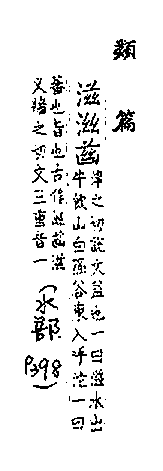 類篇
滋㵗茲津之切說文益也一曰滋水出
牛飲山白陘谷東入呼沱一曰
蕃也旨也古作㵗茲滋
又牆之切文三重音一（水部
P398）